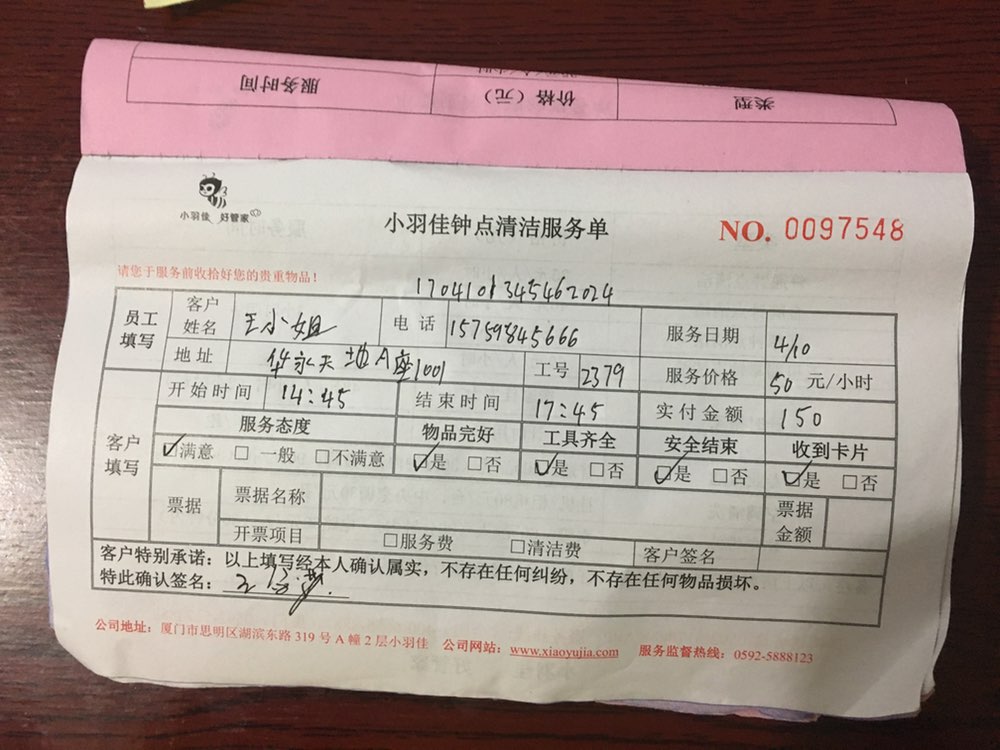 服务时间 价格（元） 类型
小羽佳 好管家
小羽佳钟点清洁服务单
NO. 0097548
请您于服务前收拾好您的贵重物品！
1704101345462024
员工填写 客户姓名 王小姐 电话 15759845666 服务日期 4/10
地址 华永天地A座1001 工号 2379 服务价格 50 元/小时
客户填写 开始时间 14:45 结束时间 17:45 实付金额 150
服务态度 物品完好 工具齐全 安全结束 收到卡片
☑满意 □一般 □不满意 ☑是 □否 ☑是 □否 ☑是 □否 ☑是 □否
票据 票据名称 票据金额
开票项目 □服务费 □清洁费 客户签名
客户特别承诺：以上填写经本人确认属实，不存在任何纠纷，不存在任何物品损坏。
特此确认签名：
公司地址：厦门市思明区湖滨东路 319 号 A 幢 2 层小羽佳 公司网站：www.xiaoyujia.com 服务监督热线：0592-5888123